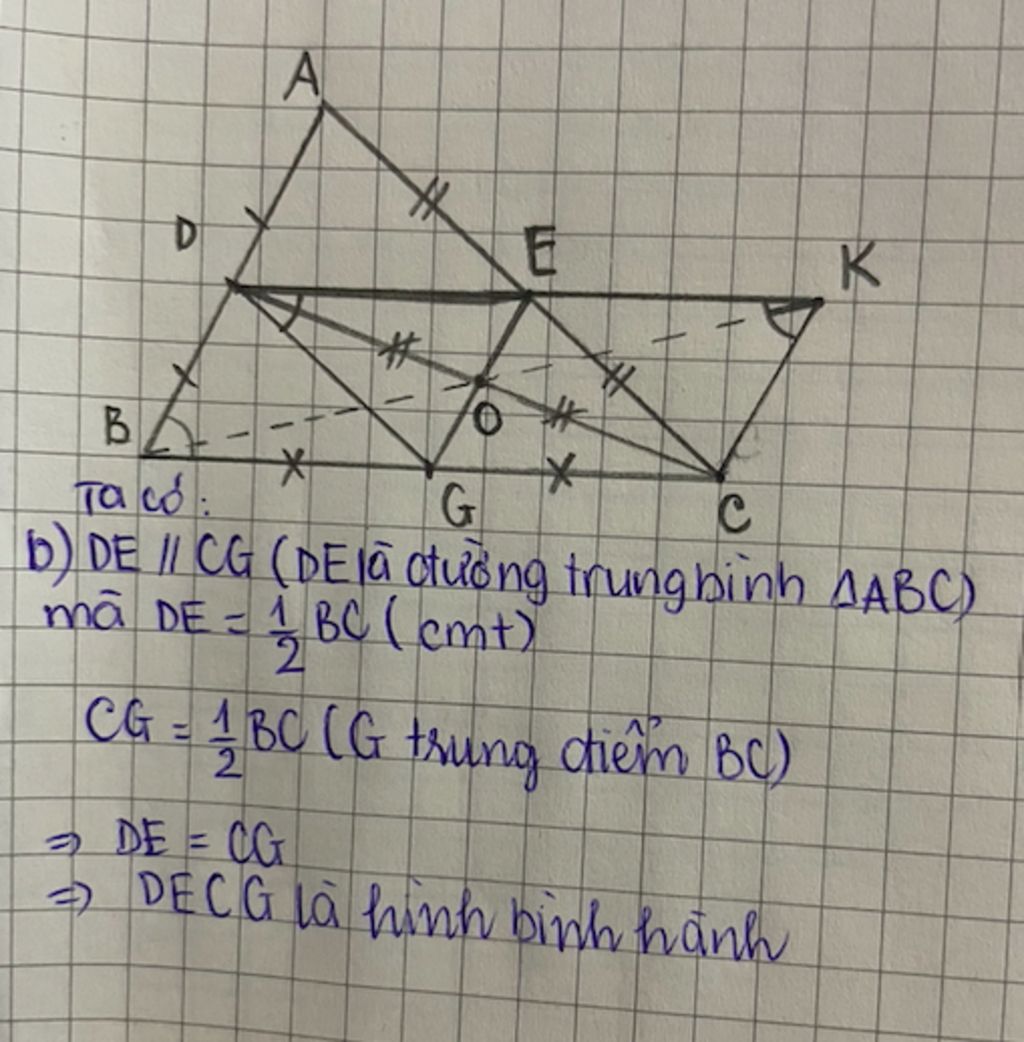 A
D
E
K
B
O
G
C
Ta có:
b) DE // CG (DE là đường trung bình ΔABC)
mà DE = 1/2 BC (cmt)
CG = 1/2 BC (G trung điểm BC)
⇒ DE = CG
⇒ DECG là hình bình hành